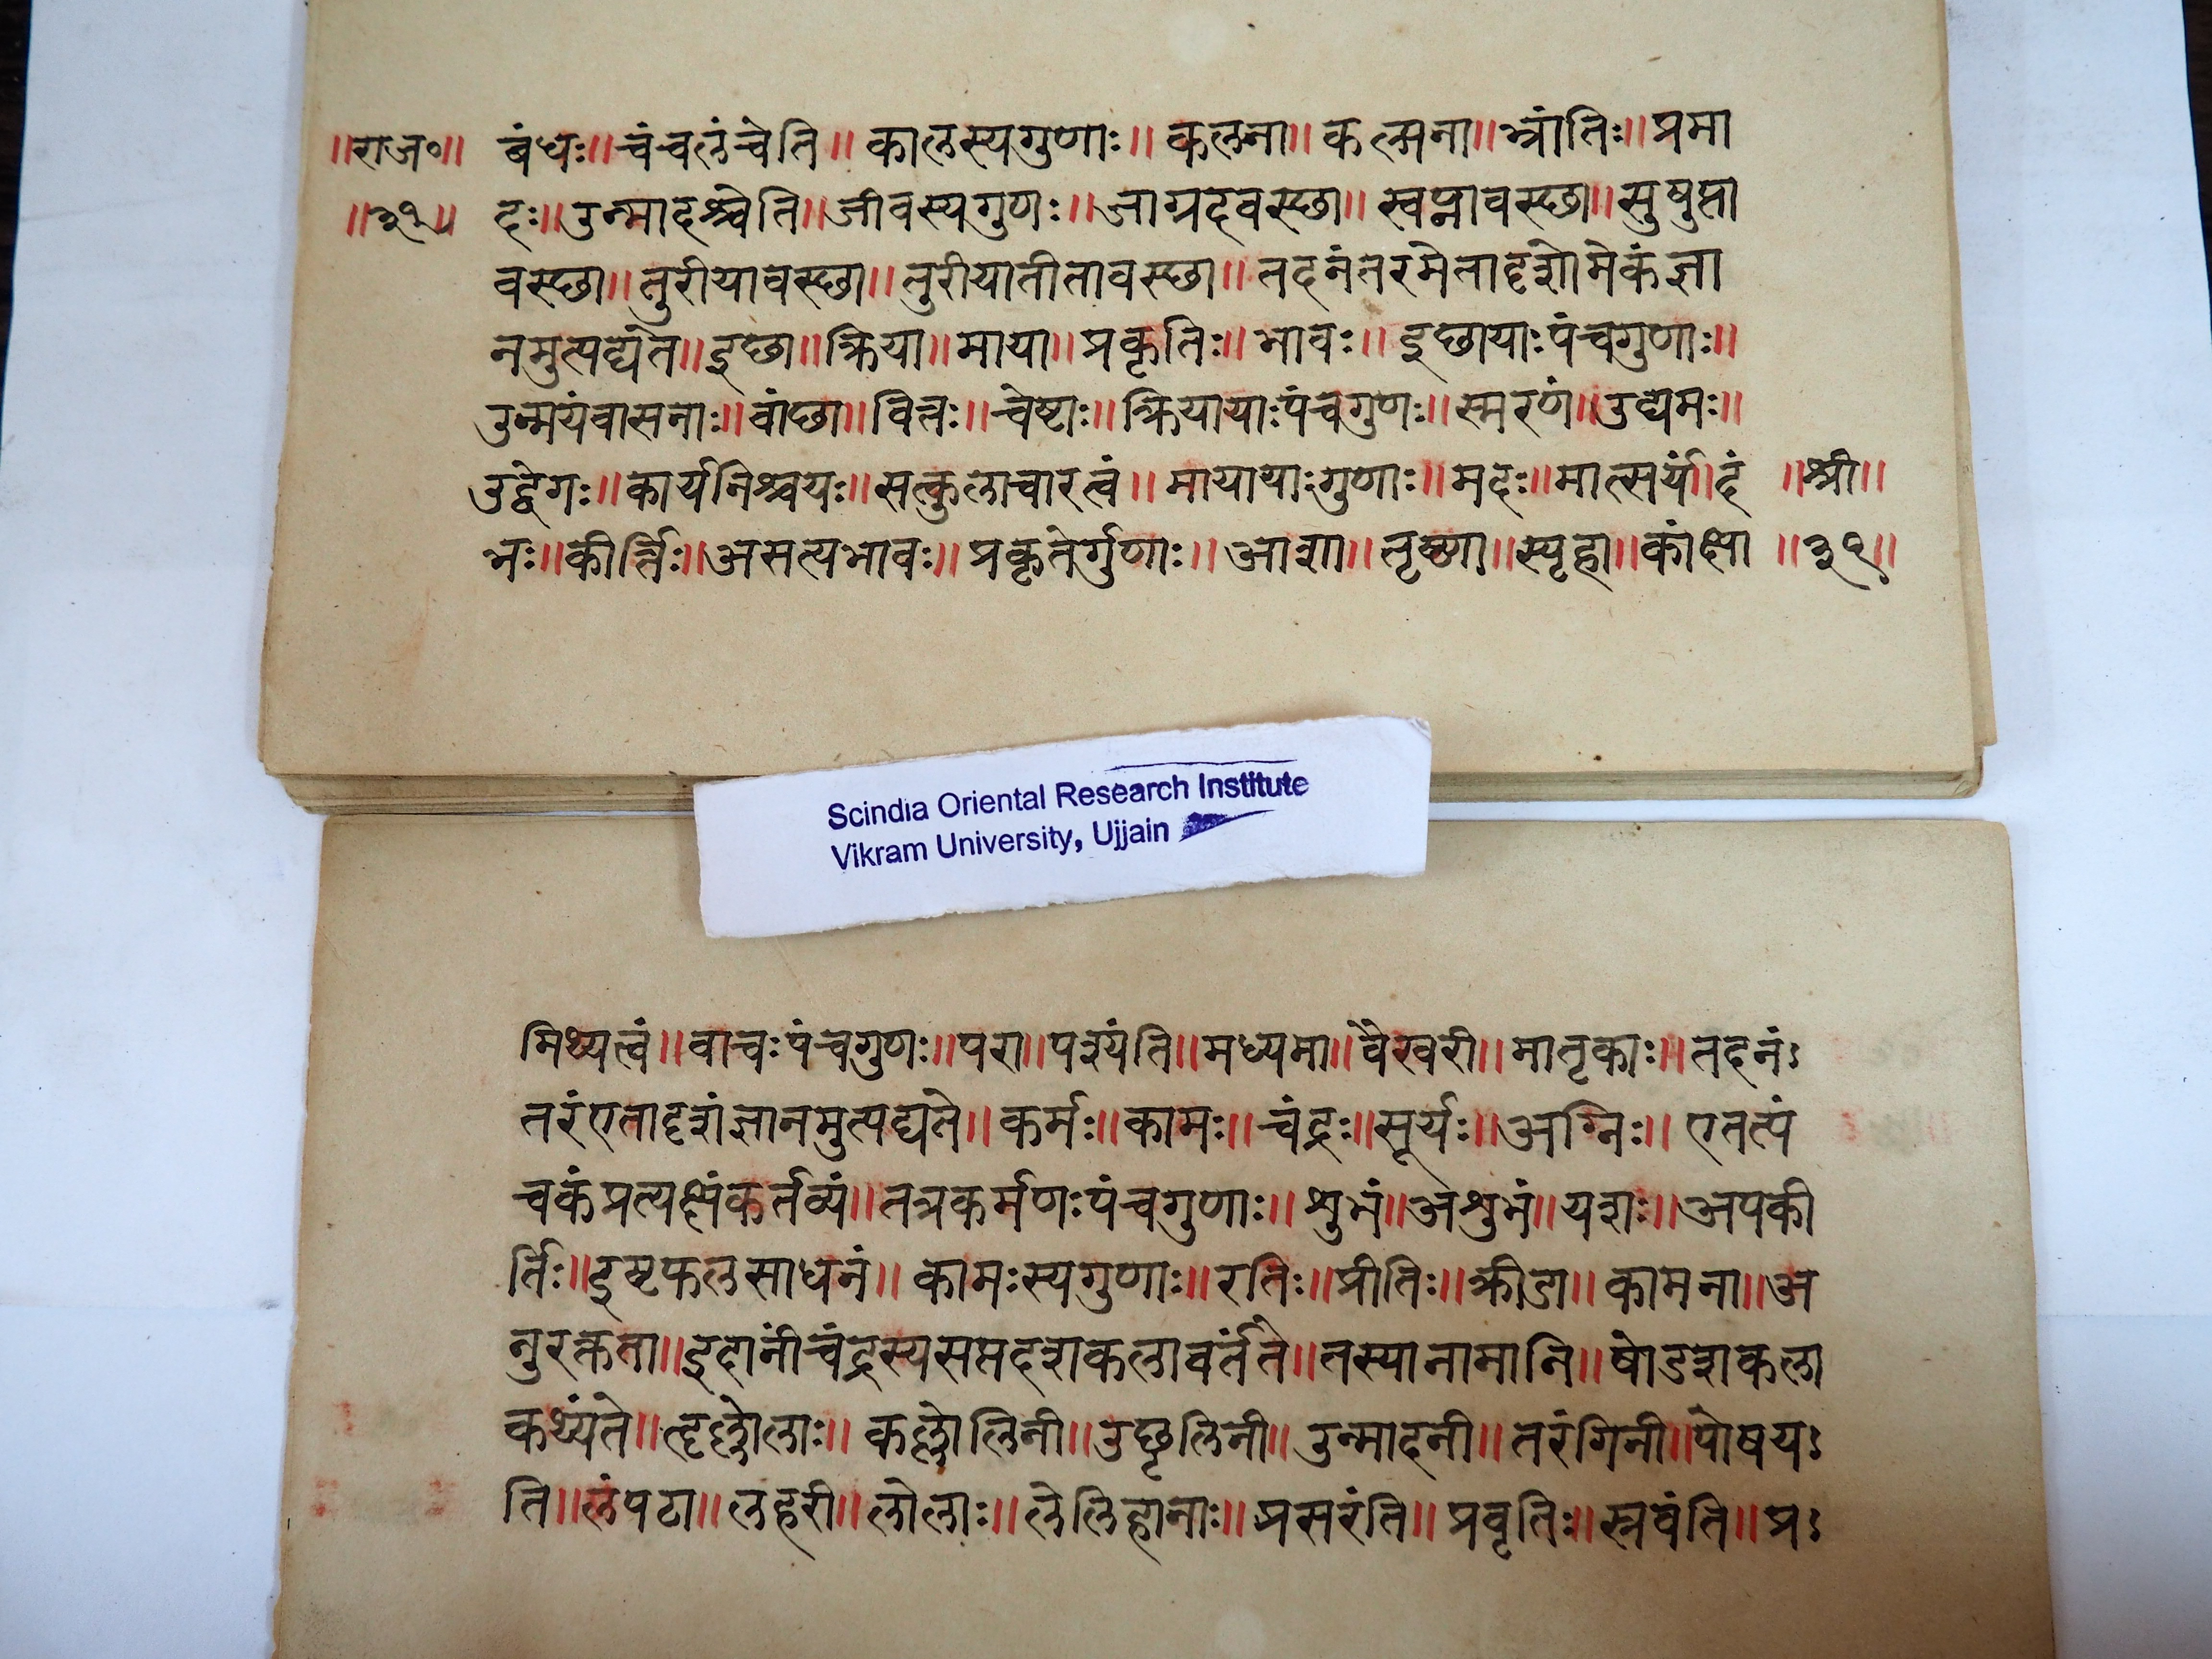 ॥राज०॥ बंधः॥चंचलंचेति॥ कालस्यगुणाः॥ कलना॥ कल्पना॥भ्रांतिः॥प्रमा
॥३१॥ दः॥उन्मादश्चेति॥जीवस्यगुणः॥जाग्रदवस्छा॥ स्वप्नावस्छा॥सुषुप्ता
वस्छा॥तुरीयावस्छा॥तुरीयातीतावस्छा॥ तदनंतरमेतादृशोमेकंज्ञा
नमुत्पद्यते॥इछा॥क्रिया॥माया॥प्रकृतिः॥भावः॥ इछायाःपंचगुणाः॥
उन्मयंवासनाः॥वांछा॥वितः॥चेष्टाः॥क्रियायाःपंचगुणः॥स्मरणं॥उद्यमः॥
उद्वेगः॥कार्यनिश्चयः॥सत्कुलाचारत्वं॥मायायाःगुणाः॥मदः॥मात्सर्यं॥दं ॥श्री॥
भः॥कीर्त्तिः॥असत्यभावः॥प्रकृतेर्गुणाः॥आशा॥तृष्णा॥स्पृहा॥कांक्षा ॥३१॥
Scindia Oriental Research Institute
Vikram University, Ujjain
मिथ्यत्वं॥वाचःपंचगुणः॥परा॥पश्यंति॥मध्यमा॥वैखरी॥मातृकाः॥तदनं
तरंएतादृशंज्ञानमुत्पद्यते॥कर्मः॥कामः॥चंद्रः॥सूर्यः॥अग्निः॥ एतत्पं
चकंप्रत्यक्षंकर्तव्यं॥तत्रकर्मणःपंचगुणाः॥शुभं॥अशुभं॥यशः॥अपकी
र्तिः॥इष्टफलसाधनं॥ कामःस्यगुणाः॥रतिः॥प्रीतिः॥क्रीडा॥कामना॥अ
नुरक्तता॥इदानींचंद्रस्यसप्तदशकलावर्तंते॥तस्यानामानि॥षोडशकला
कथ्यंते॥ कल्लोलिनी॥उछृलिनी॥उन्मादनी॥तरंगिनी॥पोषय
ति॥लंपटा॥लहरी॥लोलाः॥लेलिहानाः॥प्रसरंति॥प्रवृतिः॥स्रवंति॥प्र